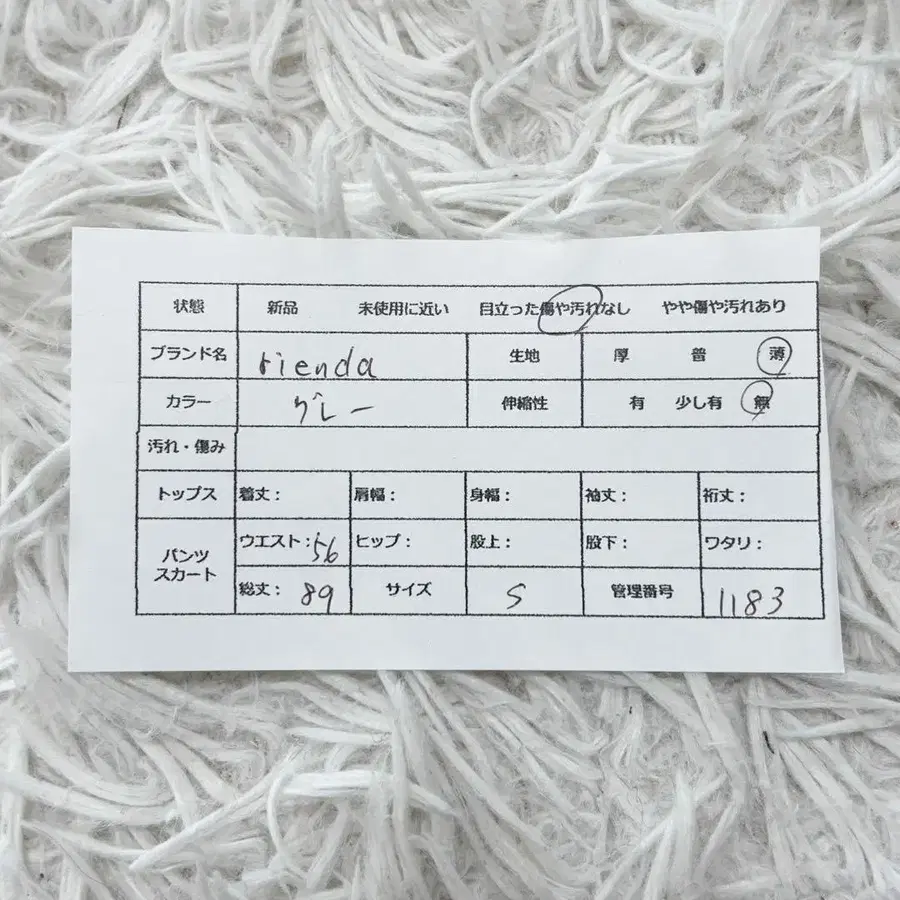 状態 新品 未使用に近い 目立った傷や汚れなし やや傷や汚れあり
ブランド名 rienda 生地 厚 普 薄
カラー グレー 伸縮性 有 少し有 無
汚れ・傷み
トップス 着丈： 肩幅： 身幅： 袖丈： 裄丈：
パンツ スカート ウエスト：56 ヒップ： 股上： 股下： ワタリ：
総丈： 89 サイズ S 管理番号 1183